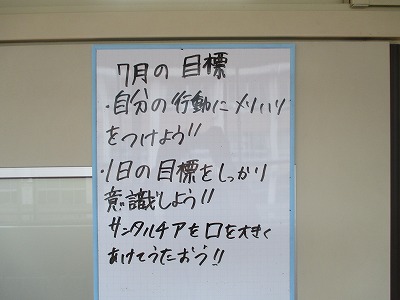 7月の目標
・自分の行動にメリハリ
をつけよう!!
・1日の目標をしっかり
意識しよう!!
サンタルチアを口を大きく
あけてうたおう!!